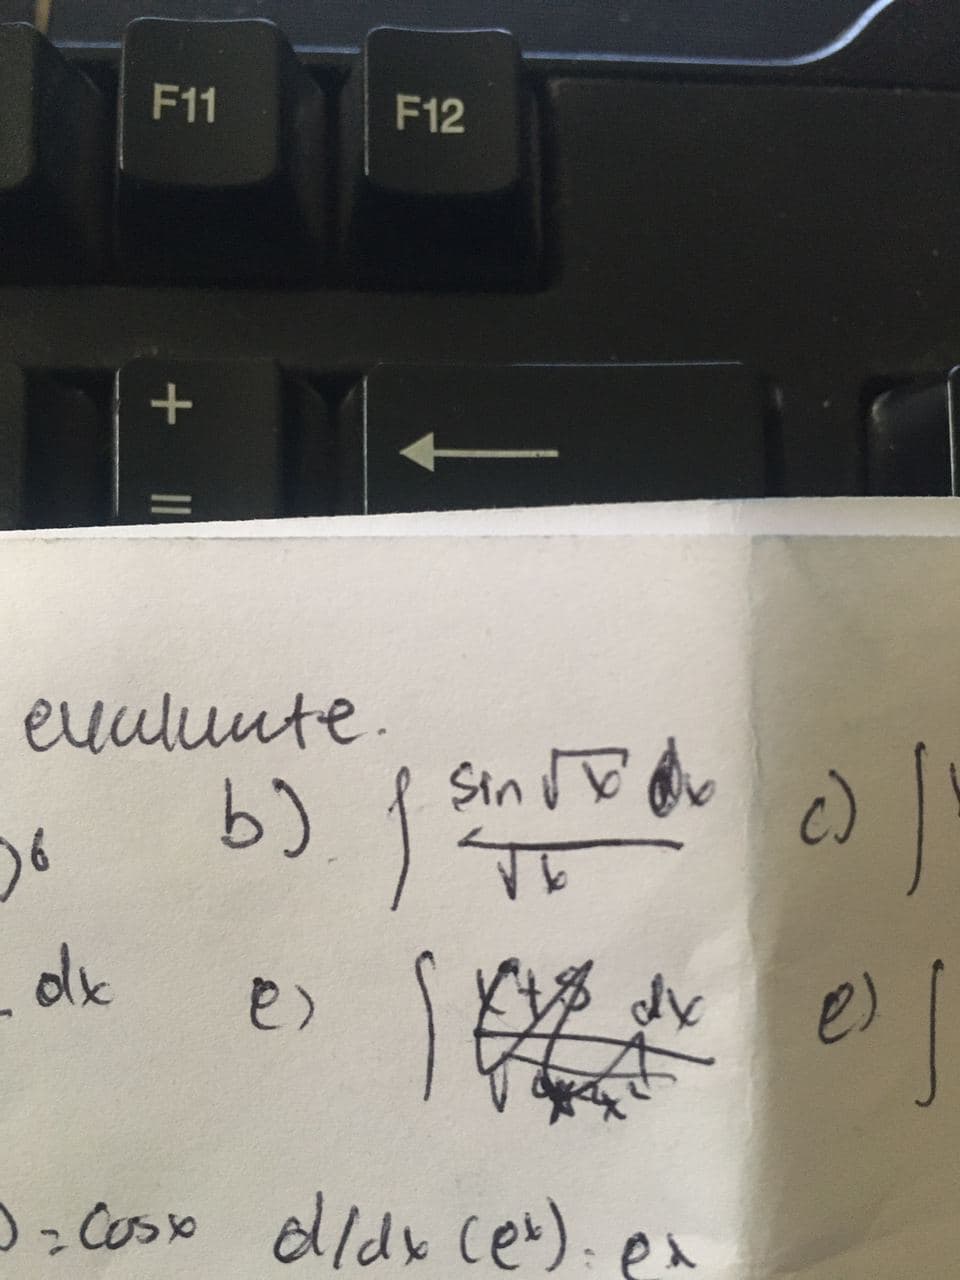 F11 F12
+
=
evaluate.
)6 b) ∫ sin√x dx c) ∫
√x
dx e) ∫ dx e) ∫
) = cosx d/dx (eˣ) = ex